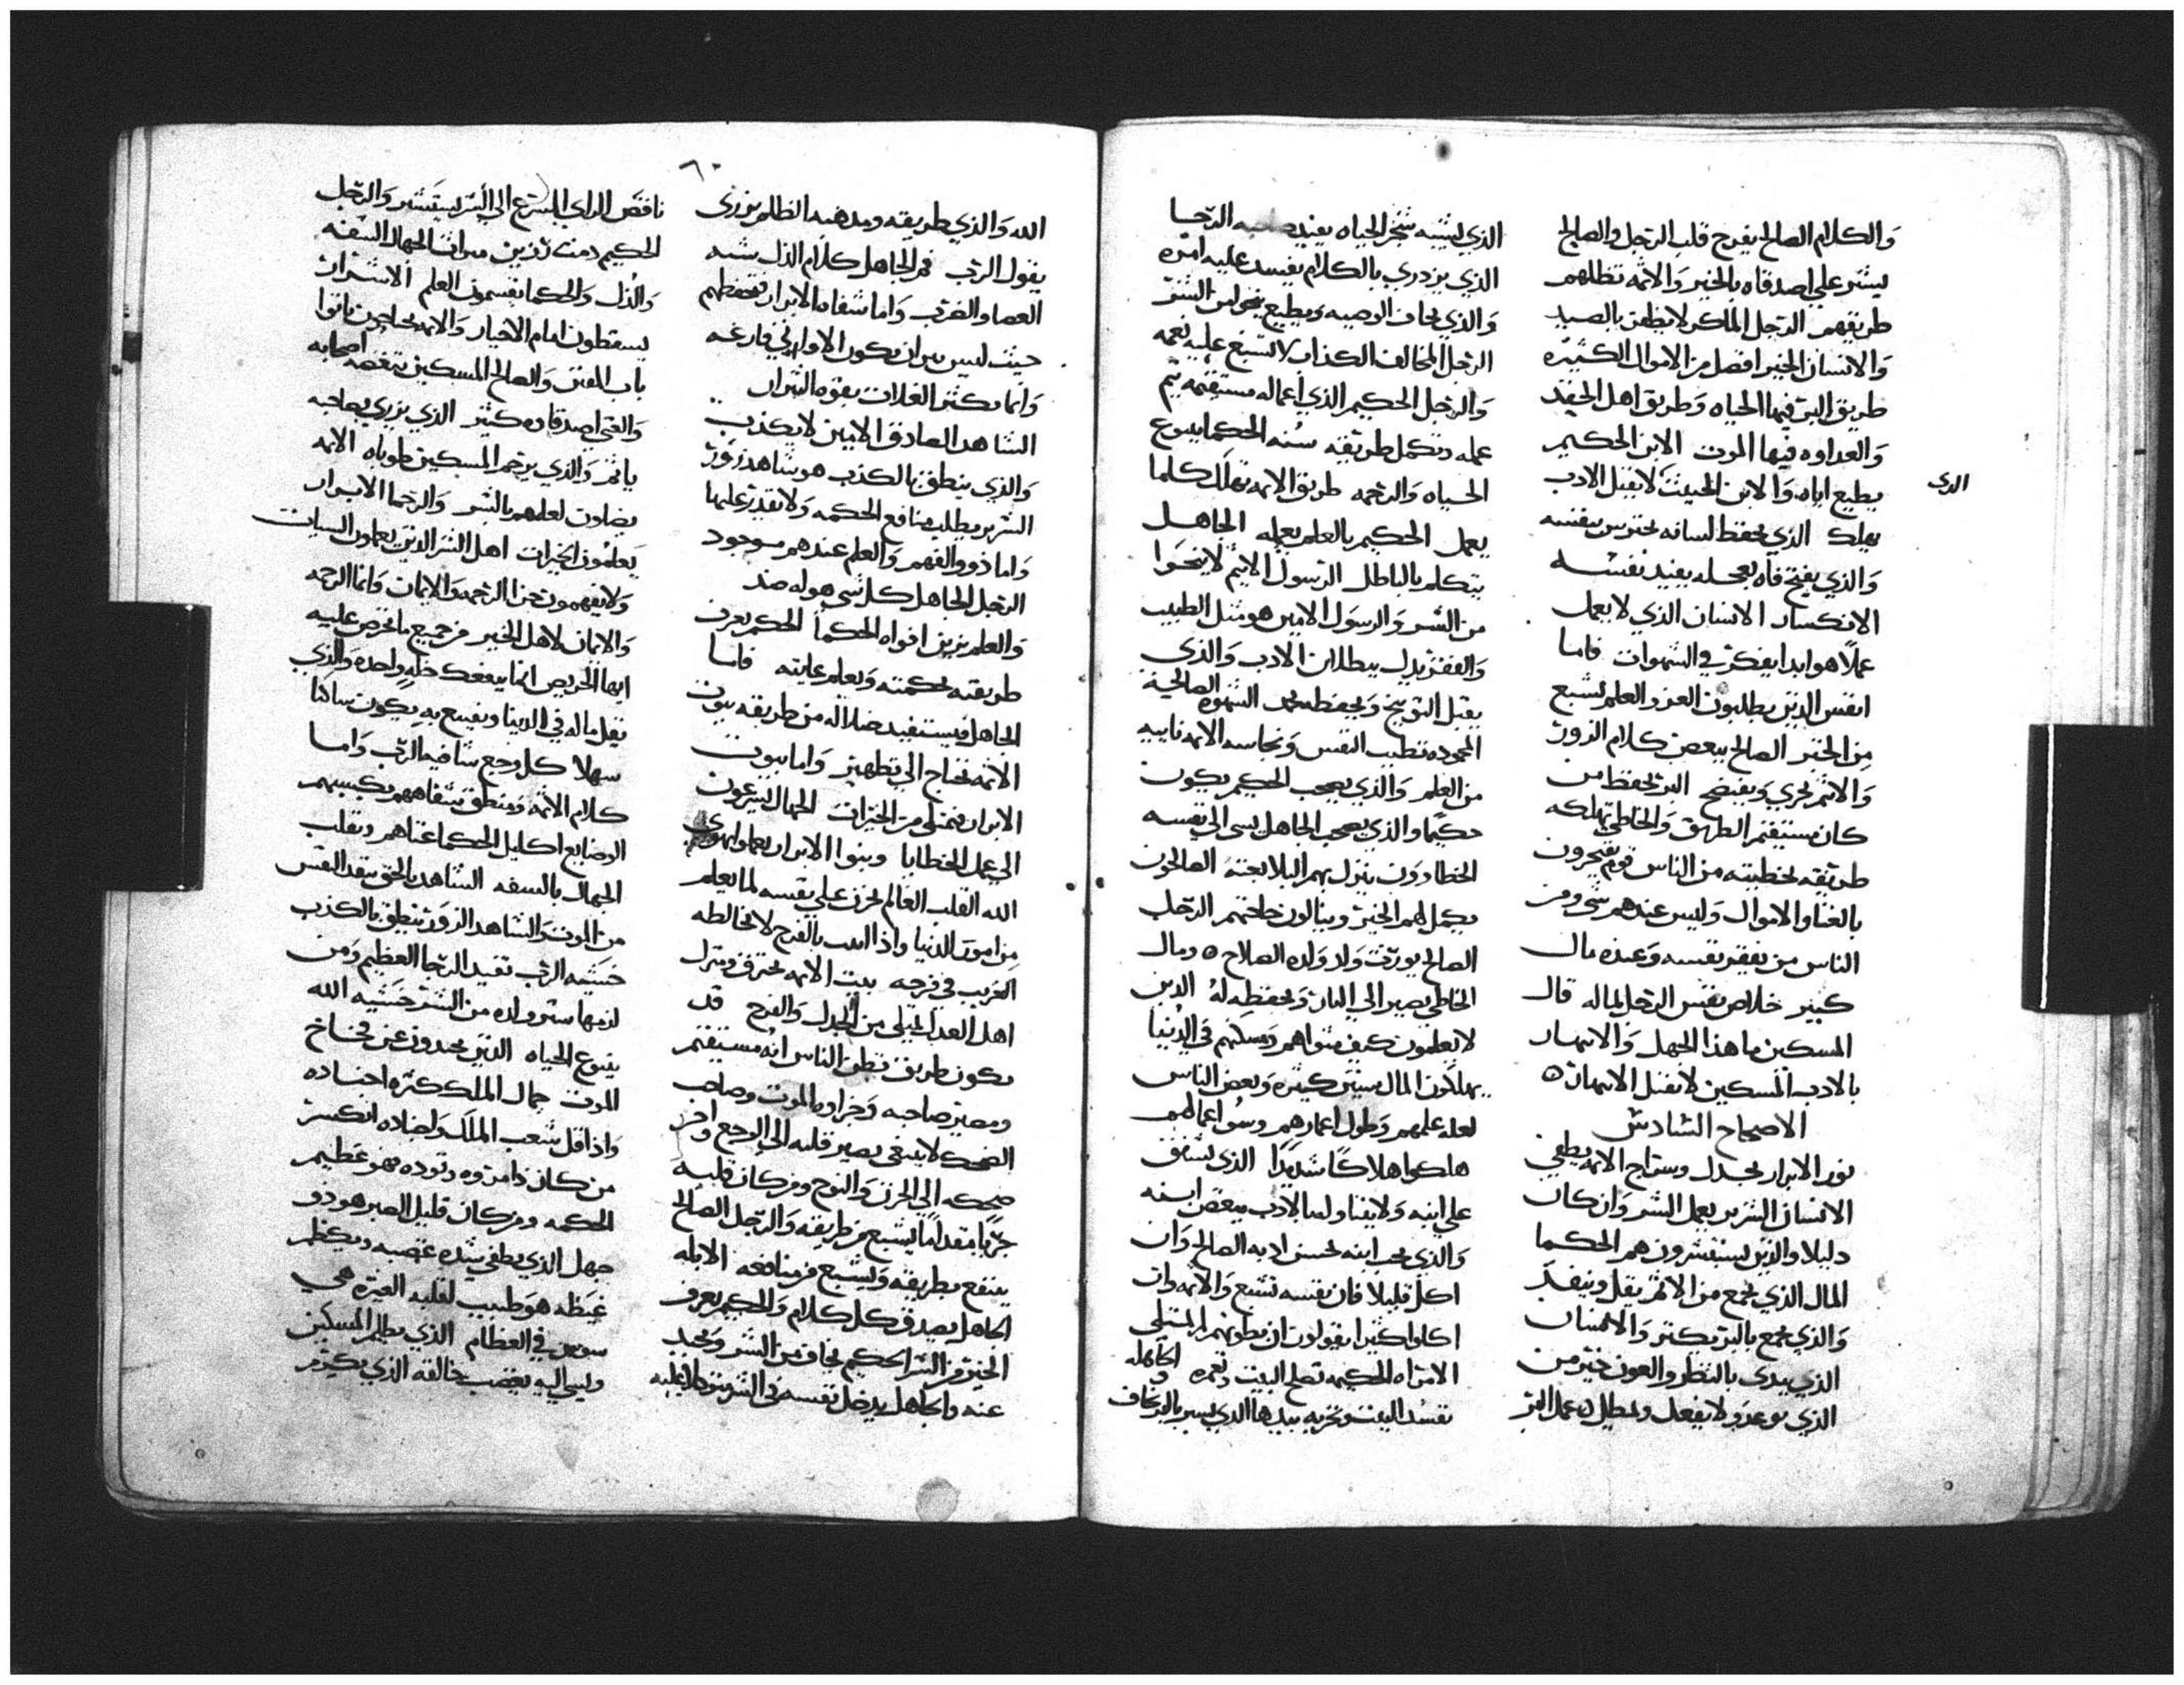 والكلام الصالح يفرح قلب الرجل والصالح
يشير علي اصدقاه بالخير والاثمه تظلهم
طريقهم الرجل الماكر لا يظفر بالصيد
والانسان الخير افضل من الاموال الكثيره
طريق البر فيها الحياه وطريق اهل الحقد
والعداوه فيها الموت الابن الحكيم
يطيع اباه والابن الخبيث لا يقبل الادب
الذي
يهلك الذي يحفظ لسانه يحترس بنفسه
والذي يفتح فاه بعجله يفيد نفسه
الانكسار الانسان الذي لا يعمل
عملا هو ابدا يفكر في الشهوات فاما
انفس الذين يطلبون العز والعلم تشبع
من الخير الصالح يبغض كلام الزور
والاثيم يخزي ويفتضح البر يحفظ من
كان مستقيم الطريق والخاطي تهلكه
طريقه لخطيته من الناس قوم يفتخرون
بالغنا والاموال وليس عندهم شي ومن
الناس من يفقر نفسه وعنده مال
كبير خلاص نفس الرجل ماله قال
المسكين ما هذا الجهل والانتهار
بالادب المسكين لا يقبل الانتهار ه
الاصحاح السادس
نور الابرار يجدل وسراج الاثمه يطفي
الانسان الشرير يعمل الشر وان كان
دليلا والذين يستشيرون هم الحكما
المال الذي يجمع من الاثم يقل وينفد
والذي يجمع بالبر يكثر والانسان
الذي يبدي بالنظر والعون خير من
الذي يوعد ولا يفعل ويطيل عمل البر
الذي يشبه شجر الحياه يفيد صاحبه الرجا
الذي يزدري بالكلام يفسد عليه امره
والذي يخاف الوصيه ويطيع ينجو من الشر
الرجل المخالف الكذاب لا تسبغ عليه نعمه
والرجل الحكيم الذي اعماله مستقيمه يتم
عمله وتكمل طريقه سنه الحكما ينبوع
الحياه والرحمه طريق الاثمه تهلك كلما
يعمل الحكيم بالعلم يعمله الجاهل
يتكلم بالباطل الرسول الاثيم لا ينجوا
من الشر والرسول الامين هو مثل الطبيب
والفقر يدل ببطلان الادب والذي
يقبل التوبيخ ويحفظه يحمد الشهوه الصالحة
المحموده تطيب النفس ونجاسه الاثمه نابيه
من العلم والذي يصحب الحكيم يكون
حكيما والذي يصحب الجاهل يسي الي نفسه
الخطا دون ينزل بهم البلا بغته الصالحون
يكمل لهم الخير وينالون حاجتهم الرجل
الصالح يورثت ولد ولده الصلاح ه ومال
الخاطي يصير الي البار ويحفظه له الدين
لا يعلمون كيف مثواهم ومسكنهم في الدنيا
يهلكون المال سنين كثيره وبعض الناس
لعله علمهم وطول اعمارهم وسو اعمالهم
هلكوا هلاكا شديدا الذي يشفق
علي ابنه ولا يتناوله الادب يبغض ابنه
والذي يحب ابنه يحسن ادبه الصالح وان
اكل قليلا فان نفسه تشبع والاثمه وان
اكلوا كثيرا يقولون ان بطونهم لم تمتلي
الامراه الحكيمه تصلح البيت وتعمره والجاهله
تفسد البيت وتخربه بيدها الذي يسير بالبر يخاف
٦٠
الله والذي طريقه ومذهبه الظلم يزري
بقول الرب فم الجاهل كلام الذل شبه
العصا والضرب واما شفاه الابرار تحفظهم
حيث ليس نيران تكون الاواري فارغه
وانما تكثر الغلات بقوه الثيران
الشاهد الصادق الامين لا يكذب
والذي ينطق بالكذب هو شاهد زور
الشرير يطلب منافع الحكمه ولا يقدر عليها
واما ذوو الفهم والعلم عندهم موجود
الرجل الجاهل كل شي هو له ضد
والعلم يزين افواه الحكما الحكيم يعرف
طريقته بحكمته ويعلم غايته فاما
الجاهل فيستفيد ضلاله من طريقه بيوت
الاثمه تحتاج الي تطهير واما بيوت
الابرار فتمتلي من الخيرات الجهال يسرعون
الي عمل الخطايا وبنوا الابرار يعملوا بهوي
الله القلب العالم يحزن علي نفسه لما يعلم
من امور الدنيا واذا بالفرح لا يخالطه
الغريب في فرحه بيت الاثمه يحترق ومنزل
اهل العدل يمتلي من الجدل والفرح قد
يكون طريق تظن الناس انه مستقيم
ومصير صاحبه وجزاوه الموت وصاحب
الضحك لا يبقي يصير قلبه الي الوجع واخر
ضحكه الي الحزن والنوح ومن كان قلبه
جريا مقداما يشبع من طريقه والرجل الصالح
ينتفع بطريقه ويشبع من منافعه الابله
الجاهل يصدق كل كلام والحكيم يعرف
الخير من الشر الحكيم يخاف من الشر ويحيد
عنه والجاهل يدخل نفسه في الشر متوكلا عليه
ناقص الراي يسرع الي الشر يستشر والرجل
الحكيم تزين ميراث الجهال السفه
والذل والحكما يقسمون العلم الاشرار
يسقطون امام الاخيار والاثمه يحتاجون ياتوا
باب المقتر والصالح المسكين تبغضه اصحابه
والغني اصدقاوه كثير الذي يزري بصاحبه
ياثم والذي يرحم المسكين طوباه الاثمه
يضلون لعلمهم بالشر والرحما الابرار
يعلمون الخيرات اهل الشر الذين يعملون السيات
ولا يفهمون نحن الرحمه والايمان وانما الرحمه
والايمان لاهل الخير من جميع ما تحرص عليه
ايها الحريص انما ينفعك خله واحده والذي
يقل ماله في الدنيا ويقنع به يكون ساكنا
سهلا كل وجع شافيه الرب واما
كلام الاثمه ومنطق شفاههم يكسبهم
الوضايع اكليل الحكما غناهم وتقلب
الجهال بالسفه الشاهد بالحق ينقذ النفس
من الموت والشاهد الزور ينطق بالكذب
خشيه الرب تفيد الرجا العظيم ومن
لزمها ستر ولده من الشر خشيه الله
ينبوع الحياه الذين يحيدون عن فخاخ
الموت جمال الملك كثره اجناده
واذا قل شعب الملك واجناده انكسر
من كان ذا مروه وتوده فهو عظيم
الحكمه ومن كان قليل الصبر هو ذو
جهل الذي يطفي شده غضبه ويكظم
غيظه هو طبيب لقلبه الغيره هي
سوس في العظام الذي يظلم المسكين
ويسي اليه يغضب خالقه الذي يكرم